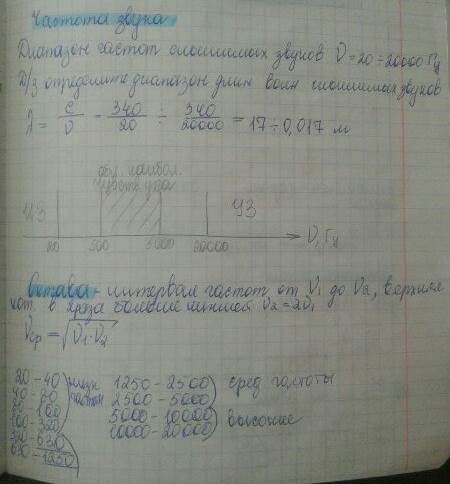 Частота звука
Диапазон частот слышимых звуков ν = 20 ÷ 20000 Гц
Д/з определить диапазон длин волн слышимых звуков
λ = c/ν = 340/20 ÷ 340/20000 = 17 ÷ 0,017 м
обл. наибол.
чувств. уха
ИЗ УЗ
20 500 5000 20000 ν, Гц
Октава - интервал частот от ν1 до ν2, верхняя
кот. в 2 раза больше нижней ν2 = 2ν1
νср = √ν1·ν2
20 - 40 1250 - 2500 сред частоты
40 - 80 частот 2500 - 5000
80 - 160 5000 - 10000 высокие
160 - 320 10000 - 20000
320 - 630
630 - 1250